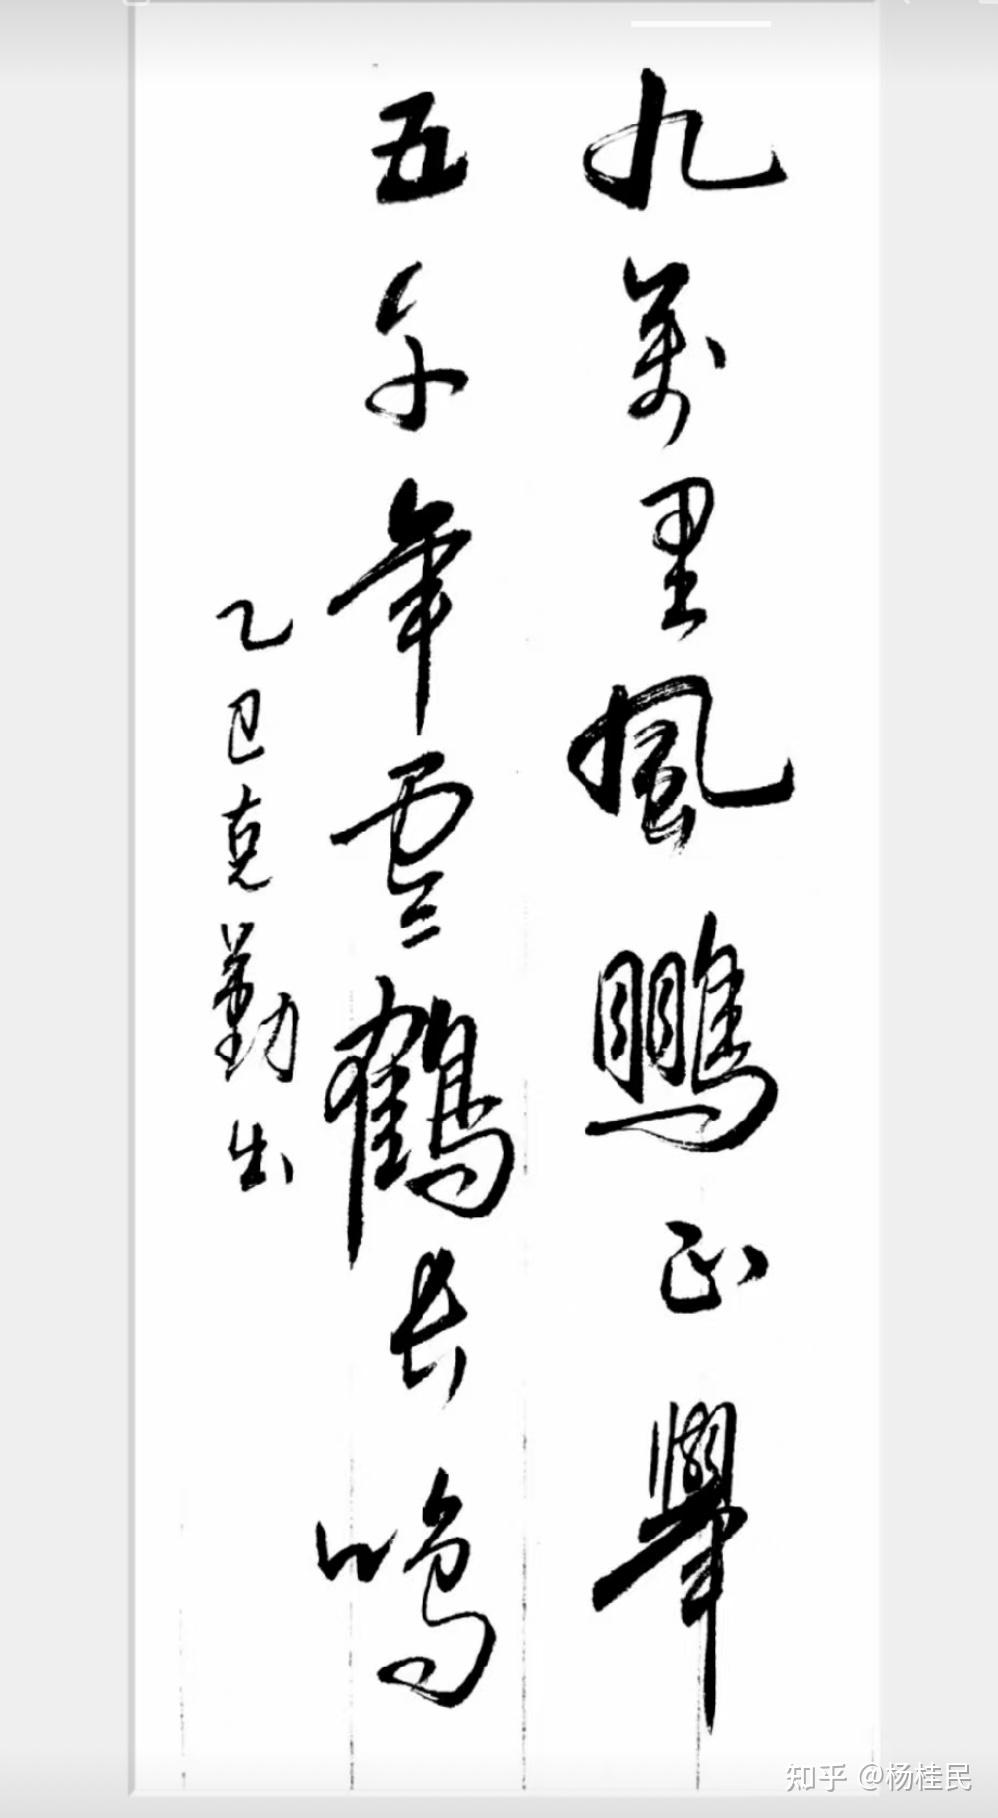 九萬里風鵬正舉
五千年雲鶴長鳴
乙巳克勤出
知乎 @杨桂民